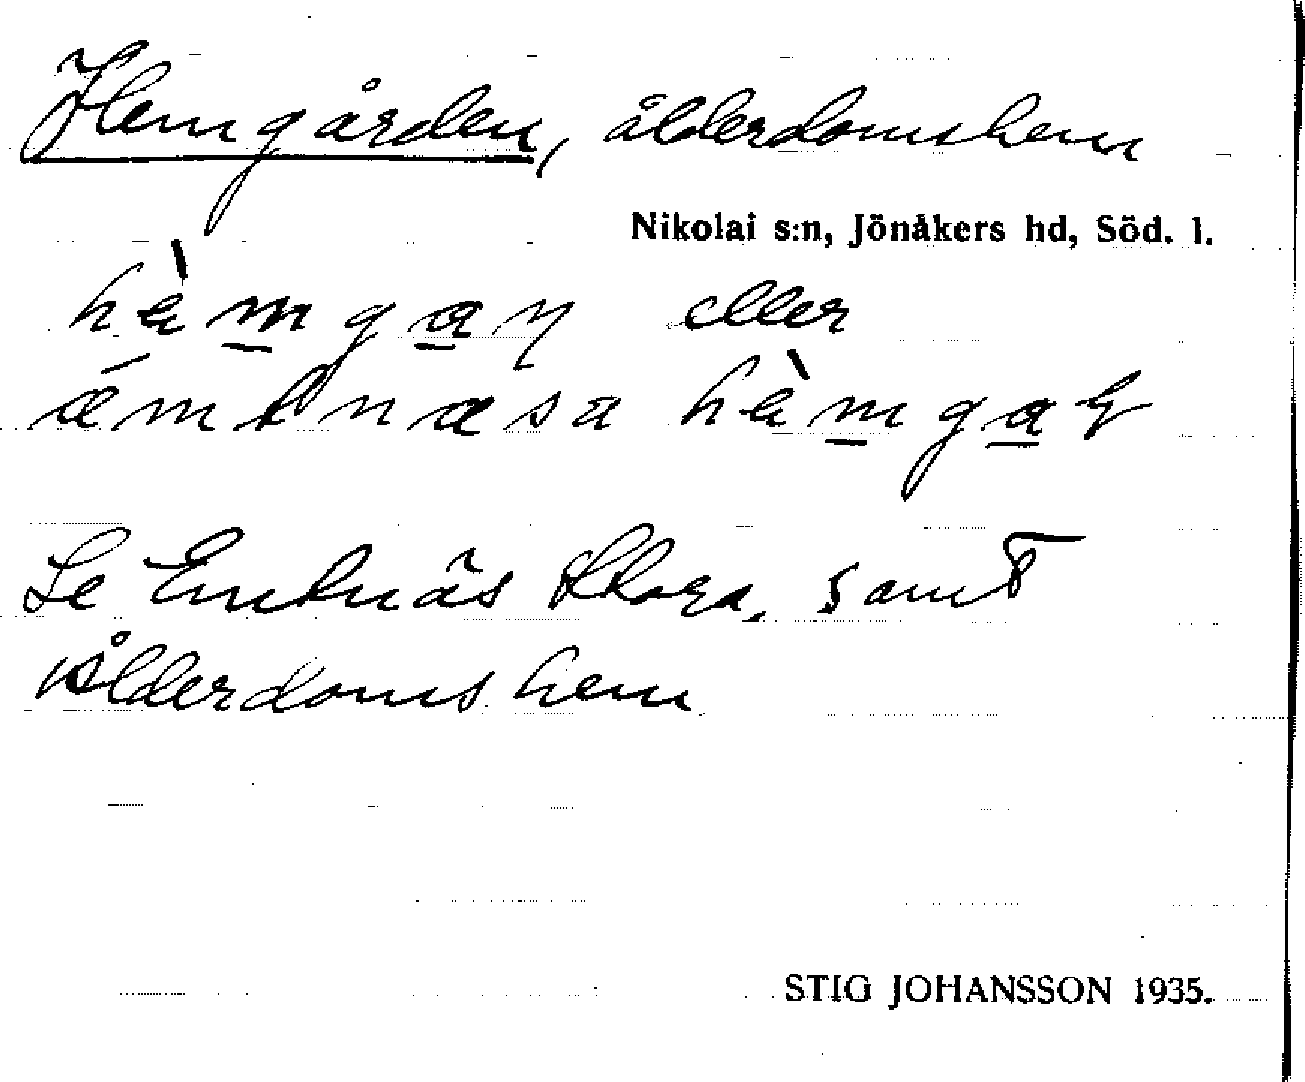 Hemgården, ålderdomshem
Nikolai s:n, Jönåkers hd, Söd. l.
hèmgaṇ eller
ǽmtnæsa hèmgaḷ
Se Emtnäs Stora, samt
Ålderdomshem
STIG JOHANSSON 1935.